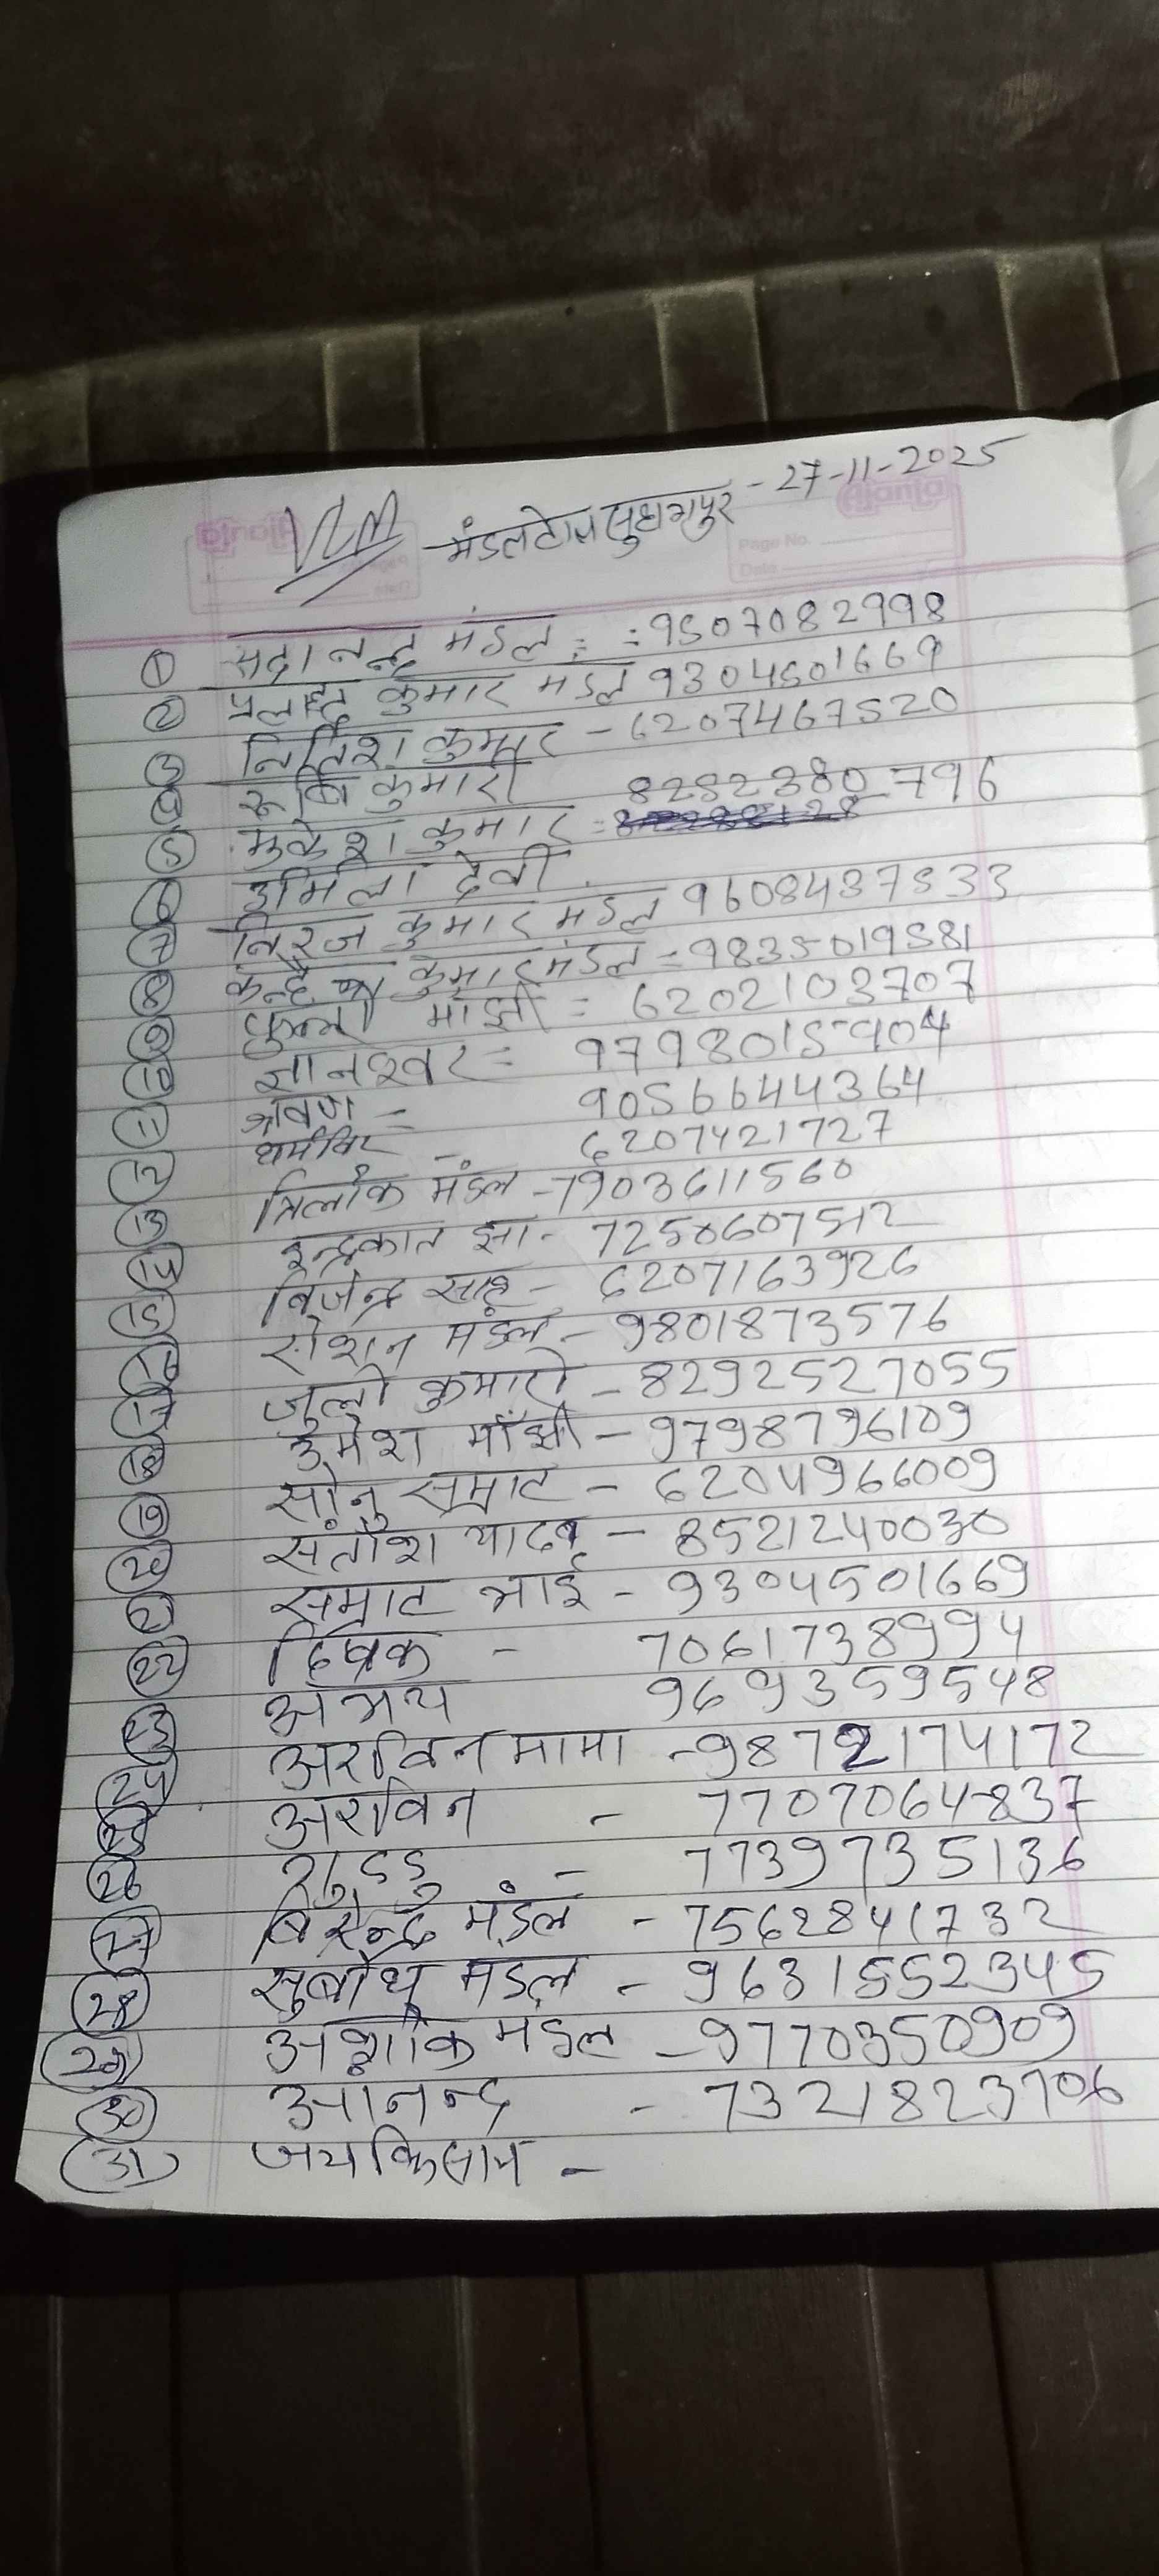 मंडलटोल सुधागपुर - 27-11-2025
Ajanta
Page No.
Date
① सदानन्द मंडल : = 9507082998
② प्रलाह्द कुमार मंडल 9304501669
③ नितिश कुमार - 6207467520
④ रूबि कुमारी
⑤ मुकेश कुमार = 8252380796
⑥ उर्मिला देवी
⑦ निरज कुमार मंडल 9608437533
⑧ कन्हैया कुमार मंडल = 9835019581
⑨ मांझी = 6202103707
⑩ ज्ञानश्वर = 9798015904
⑪ श्रवण = 9056644364
⑫ धर्मविर - 6207421727
⑬ त्रिलोक मंडल - 7903611560
⑭ इन्द्रकात झा - 7250607512
⑮ विजेन्द्र साह - 6207163926
⑯ रोशन मंडल - 9801873576
⑰ जुली कुमारी - 8292527055
⑱ उमेश माँझी - 9798796109
⑲ सोनु सम्राट - 6204966009
⑳ संतोश यादव - 8521240030
㉑ सम्राट भाई - 9304501669
㉒ दिपक - 7061738994
㉓ अभय 9693595548
㉔ अरविन मामा - 9872174172
㉕ अरविन - 7707064837
㉖ गुडडु - 7739735136
㉗ विरेन्द्र मंडल - 7562841732
㉘ सुबोध मंडल - 9631552345
㉙ अशोक मंडल - 9770350909
㉚ आनन्द - 7321823706
㉛ जयकिसान -